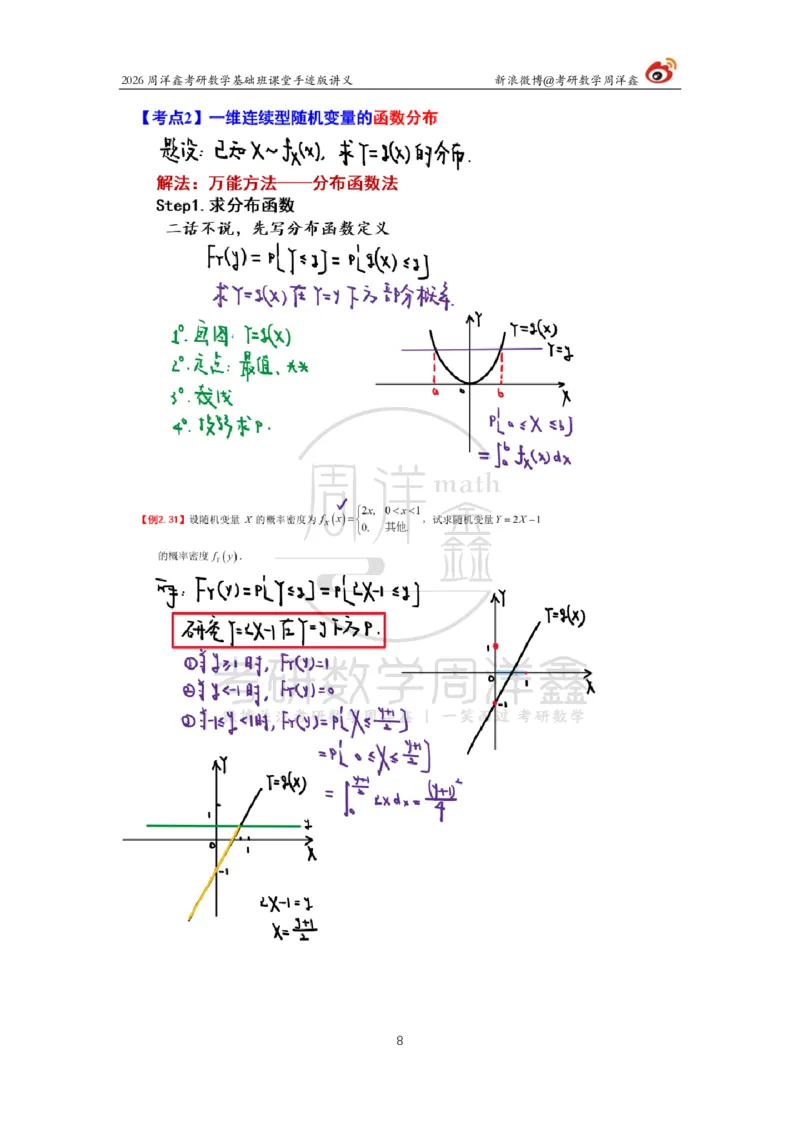 2026 周洋鑫考研数学基础班课堂手迹版讲义 新浪微博@考研数学周洋鑫
【考点2】一维连续型随机变量的函数分布
题设:已知 X~f_X(x),求 Y=g(X) 的分布.
解法:万能方法——分布函数法
Step1.求分布函数
二话不说,先写分布函数定义
F_Y(y)=P{Y≤y}=P{g(X)≤y}
求Y=g(X)在Y=y下方部分概率.
1°.画图:Y=g(X)
2°.定点:最值、
3°.
4°.找 求P.
Y
Y=g(X)
Y=y
a o b X
P{a≤X≤b}
=∫_a^b f_X(x)dx
周洋鑫 math
【例2.31】设随机变量 X 的概率密度为 f_X(x)={2x, 0<x<1; 0, 其他. ,试求随机变量Y=2X−1
的概率密度 f_Y(y).
解:F_Y(y)=P{Y≤y}=P{2X-1≤y}
研究Y=2X-1在Y=y下方P.
①当y≥1时,F_Y(y)=1
②当y<-1时,F_Y(y)=0
③当-1≤y<1时,F_Y(y)=P{X≤(y+1)/2}
=P{0≤X≤(y+1)/2}
=∫_0^{(y+1)/2} 2xdx=(y+1)²/4
Y
Y=g(X)
1
0 1 X
-1
考研数学周洋鑫
一笑而过 考研数学
Y
Y=g(X)
1
y
0 1 X
-1
2X-1=y
X=(y+1)/2
8